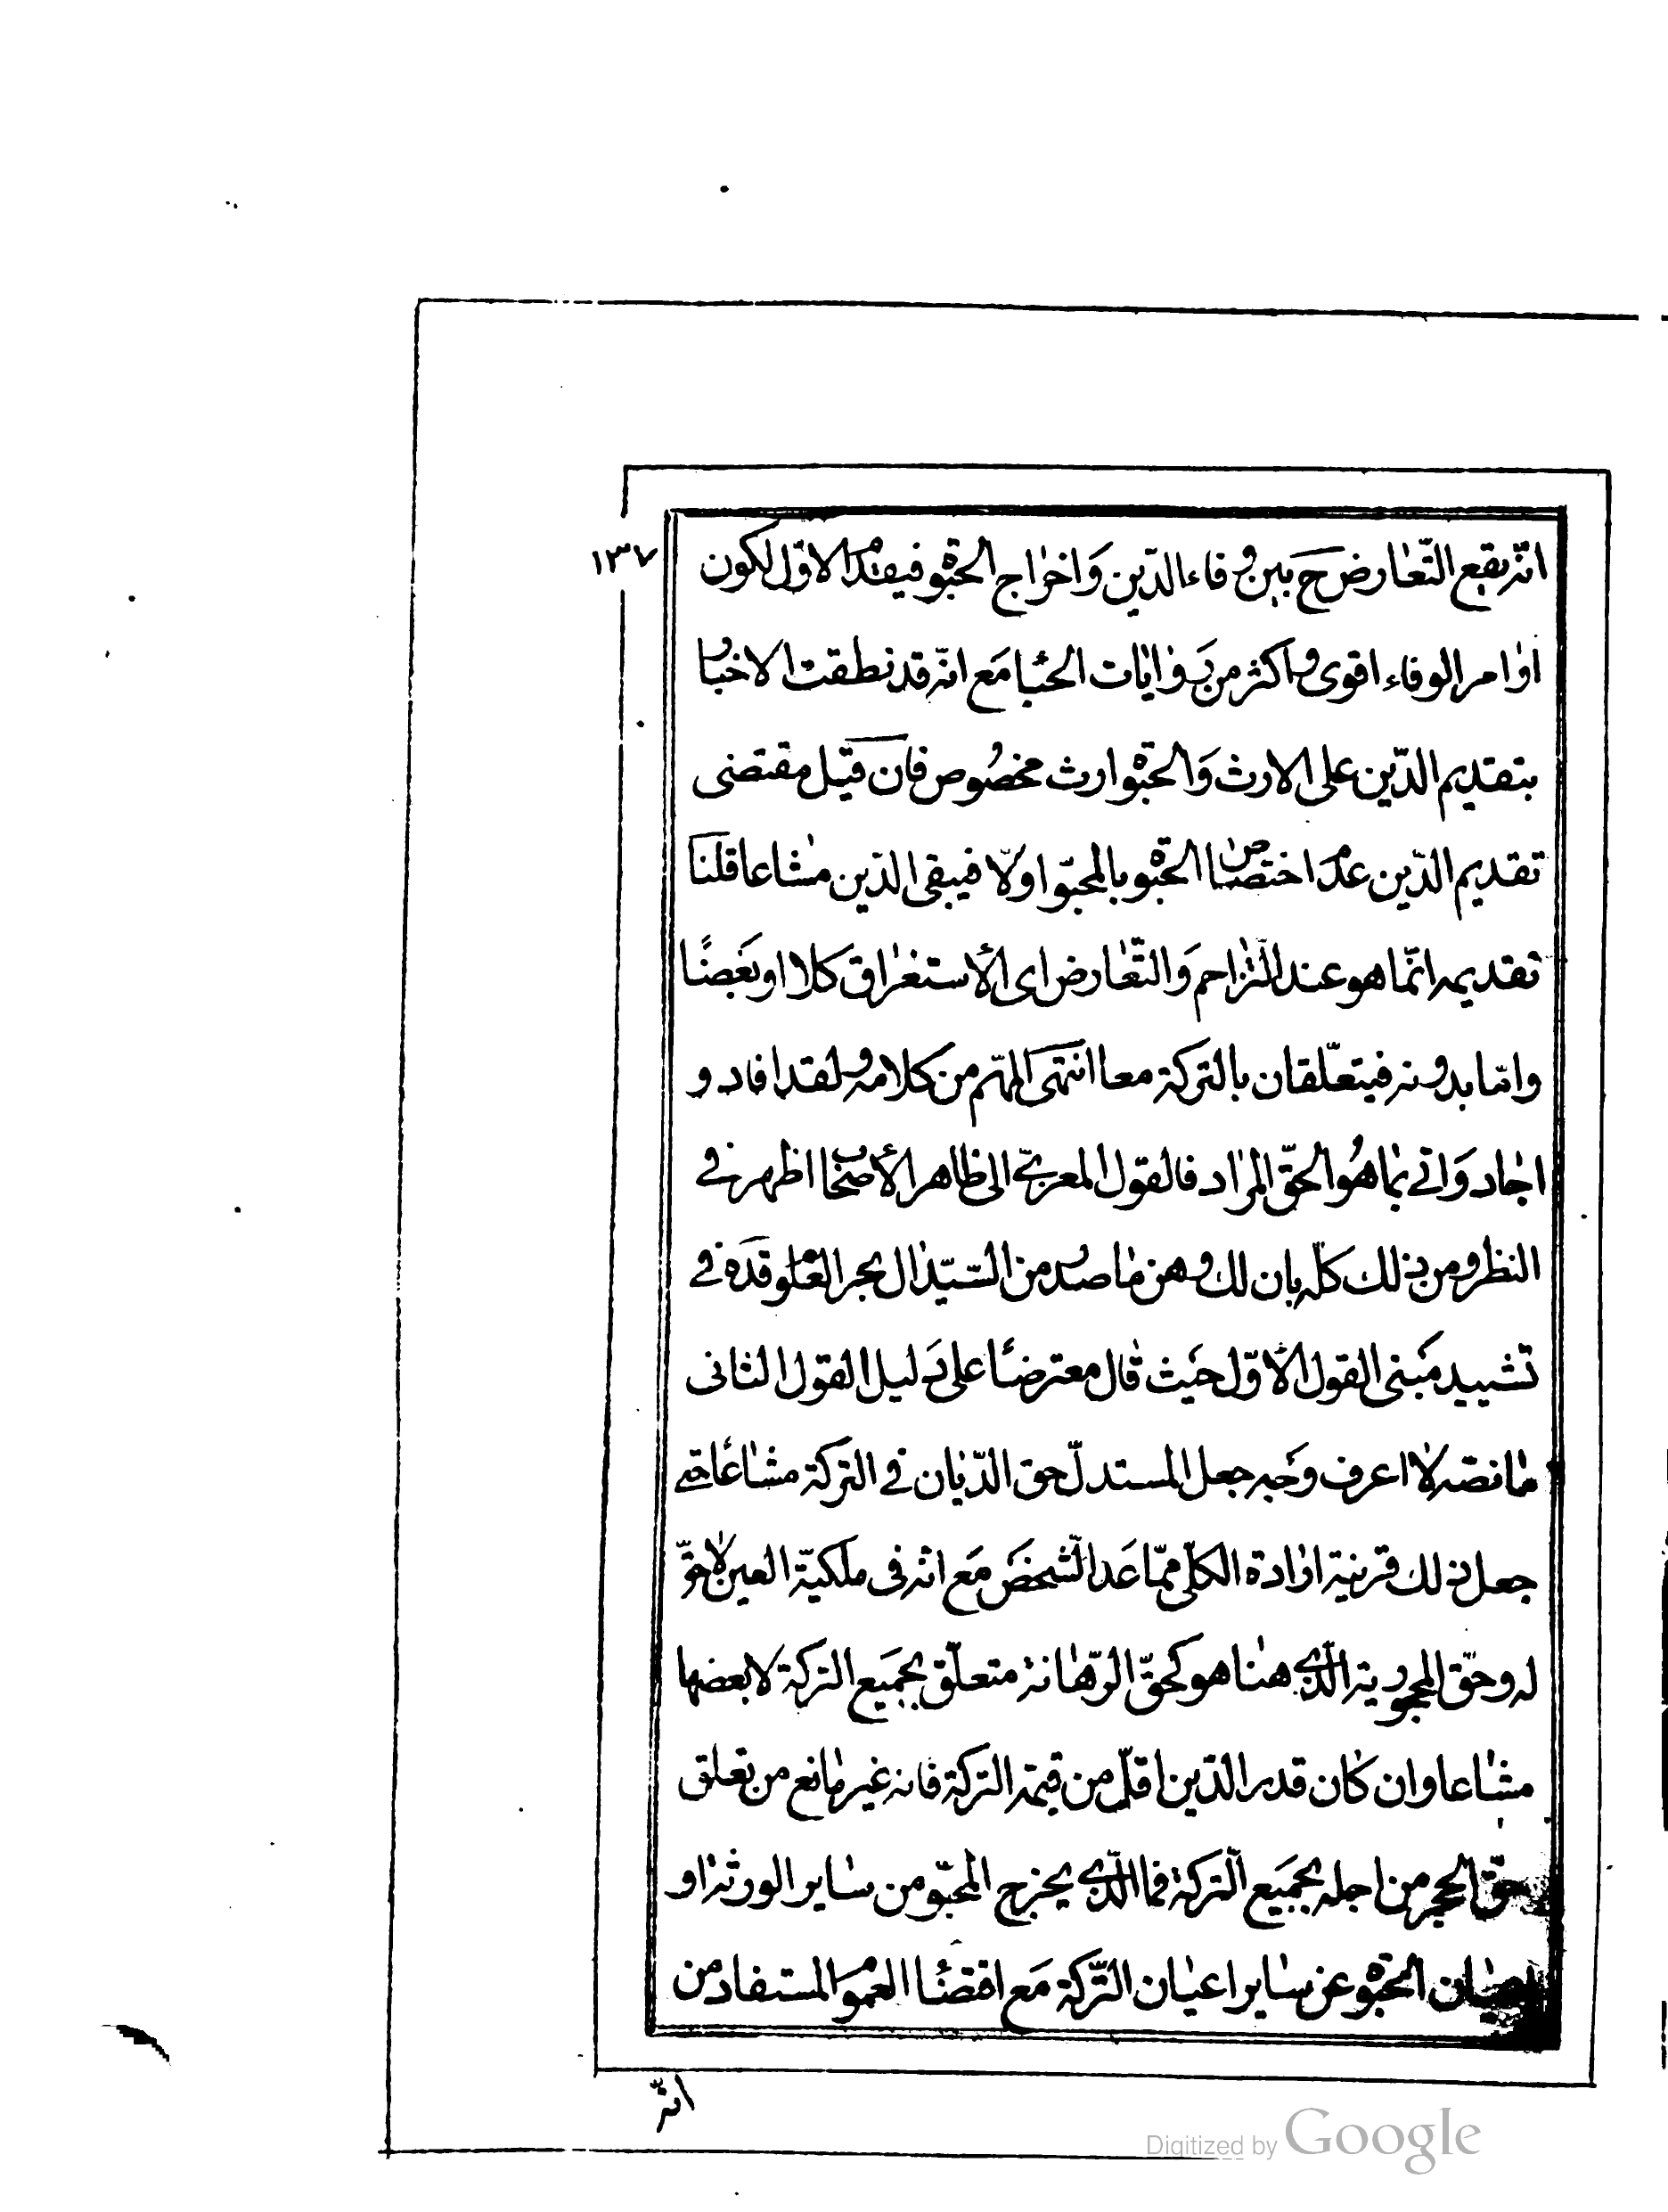 ١٣٧
انّه يقع التّعارض ح بين وفاء الدّين وَاخراج الحبوة فيقدم الاوّل لكون
اوامر الوفاء اقوى واكثر من رَوايات الحبا مَع انّه قد نطقت الاخبار
بتقديم الدّين على الارث وَالحبوة ارث مخصُوص فان قيل مقتضى
تقديم الدّين عدم اختصاص الحبوة بالمحبوّ اولا فيبقى الدّين مشاعا قلنا
تقديمه انّما هو عند التّزاحم وَالتّعارض اى الأستغراق كلا او بَعضًا
وامّا بدونه فيتعلّقان بالتركة معا انتهى المهّم من كلامه ولقد افاد و
اجاد وَاتى بما هُو الحقّ المراد فالقول المعزىّ الى ظاهر الأصحاب اظهر في
النظر ومن ذلك كلّه بان لك وهن ما صدر من السّيّد ال بحر العلوم قده في
تشييد مَبنى القول الأوّل حَيث قال معترضًا على دَليل القول الثانى
ما نصّه لا اعرف وَجه جعل المستدلّ حق الدّيان في التركة مشاعًا حتى
جعل ذلك قرينة ارادة الكلّى ممّا عَدا الشخص مَع انّه فى ملكيّة العين لا حقّ
له وحقّ المحجورية الّذى هنا هو كحقّ الرّهانة متعلّق بجَميع التركة لا بعضها
مشاعا وان كان قدر الدّين اقلّ من قيمة التركة فانه غير مانع من تعلق
حقّ الحجر من اجله بجَميع التّركة فما الّذى يخرج المحبوّ من ساير الورثة او
الحبوة عن ساير اعيان التّركة مَع اقتضَاء العموم المستفاد من
انّه
Digitized by Google